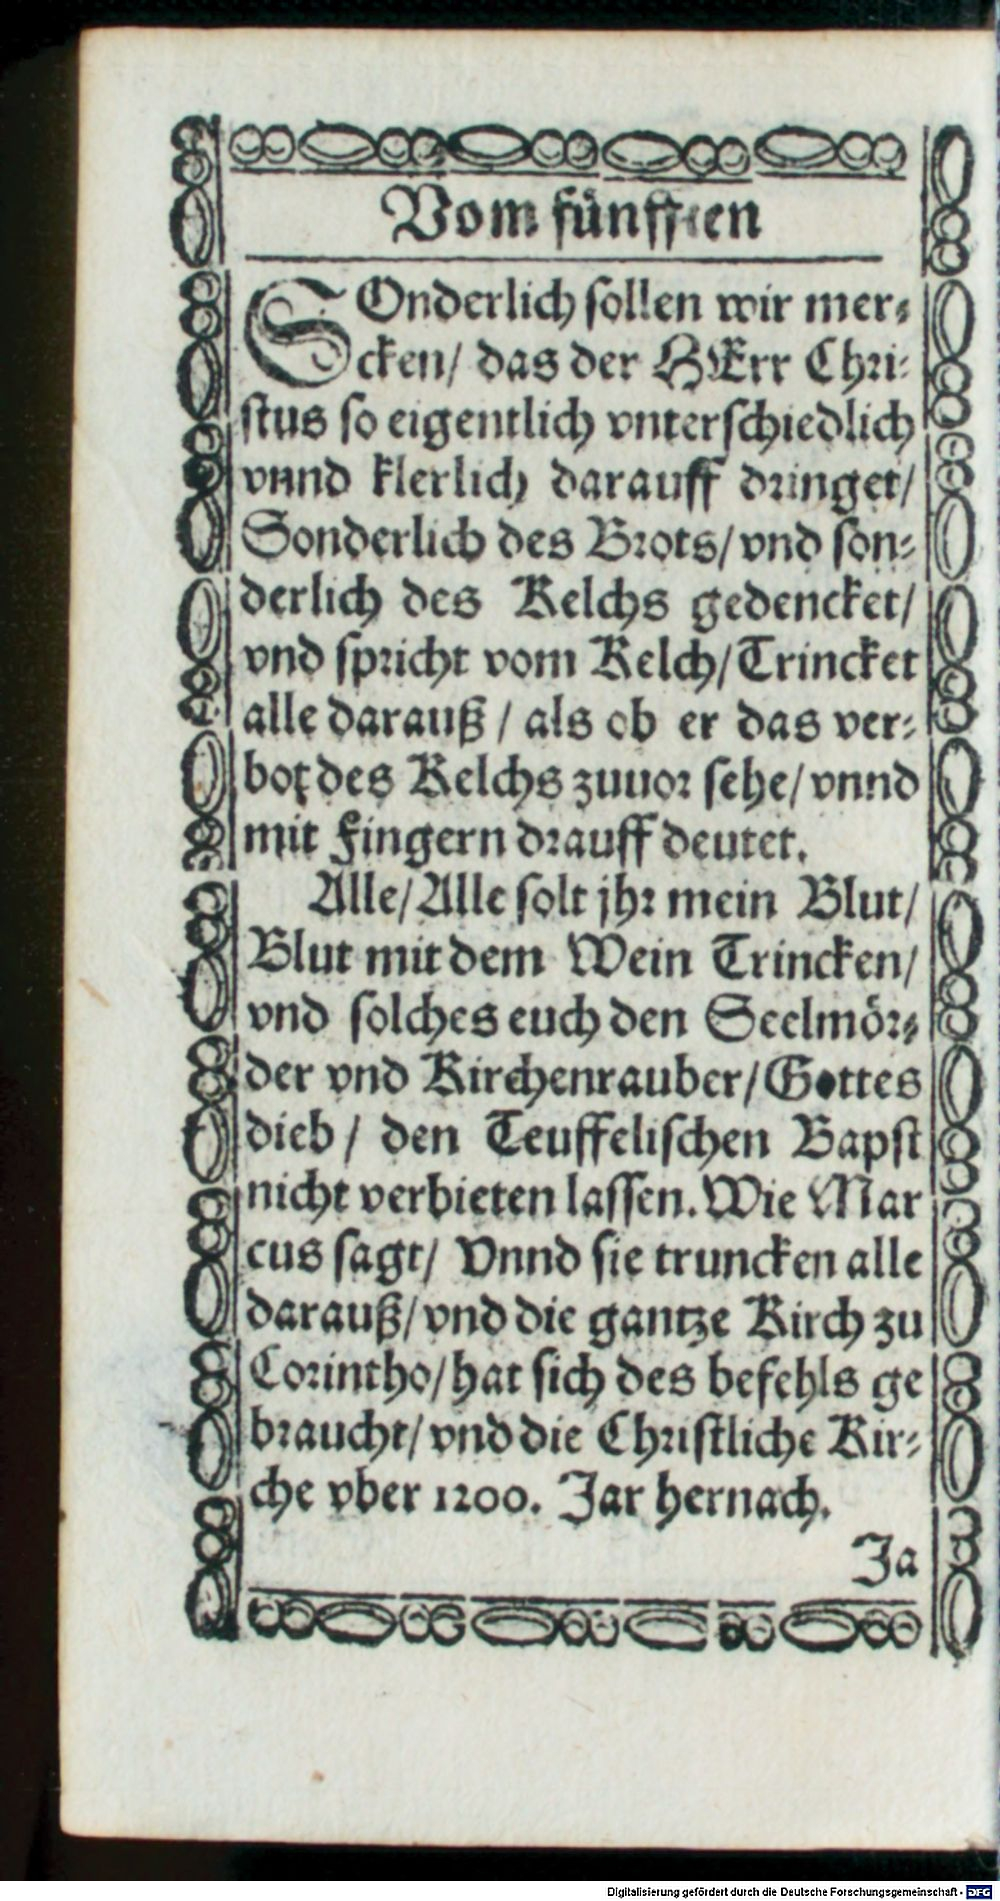 Vom fünfften
SOnderlich sollen wir mer-
cken/ das der HErr Chri-
stus so eigentlich vnterschiedlich
vnnd klerlich darauff dringet/
Sonderlich des Brots/ vnd son-
derlich des Kelchs gedencket/
vnd spricht vom Kelch/ Trincket
alle darauß / als ob er das ver-
bot des Kelchs zuuor sehe/ vnnd
mit Fingern drauff deutet.
Alle/ Alle solt jhr mein Blut/
Blut mit dem Wein Trincken/
vnd solches euch den Seelmör-
der vnd Kirchenrauber/ Gottes
dieb / den Teuffelischen Bapst
nicht verbieten lassen. Wie Mar
cus sagt/ Vnnd sie truncken alle
darauß/ vnd die gantze Kirch zu
Corintho/ hat sich des befehls ge
braucht/ vnd die Christliche Kir-
che vber 1200. Jar hernach.
Ja
Digitalisierung gefördert durch die Deutsche Forschungsgemeinschaft - DFG